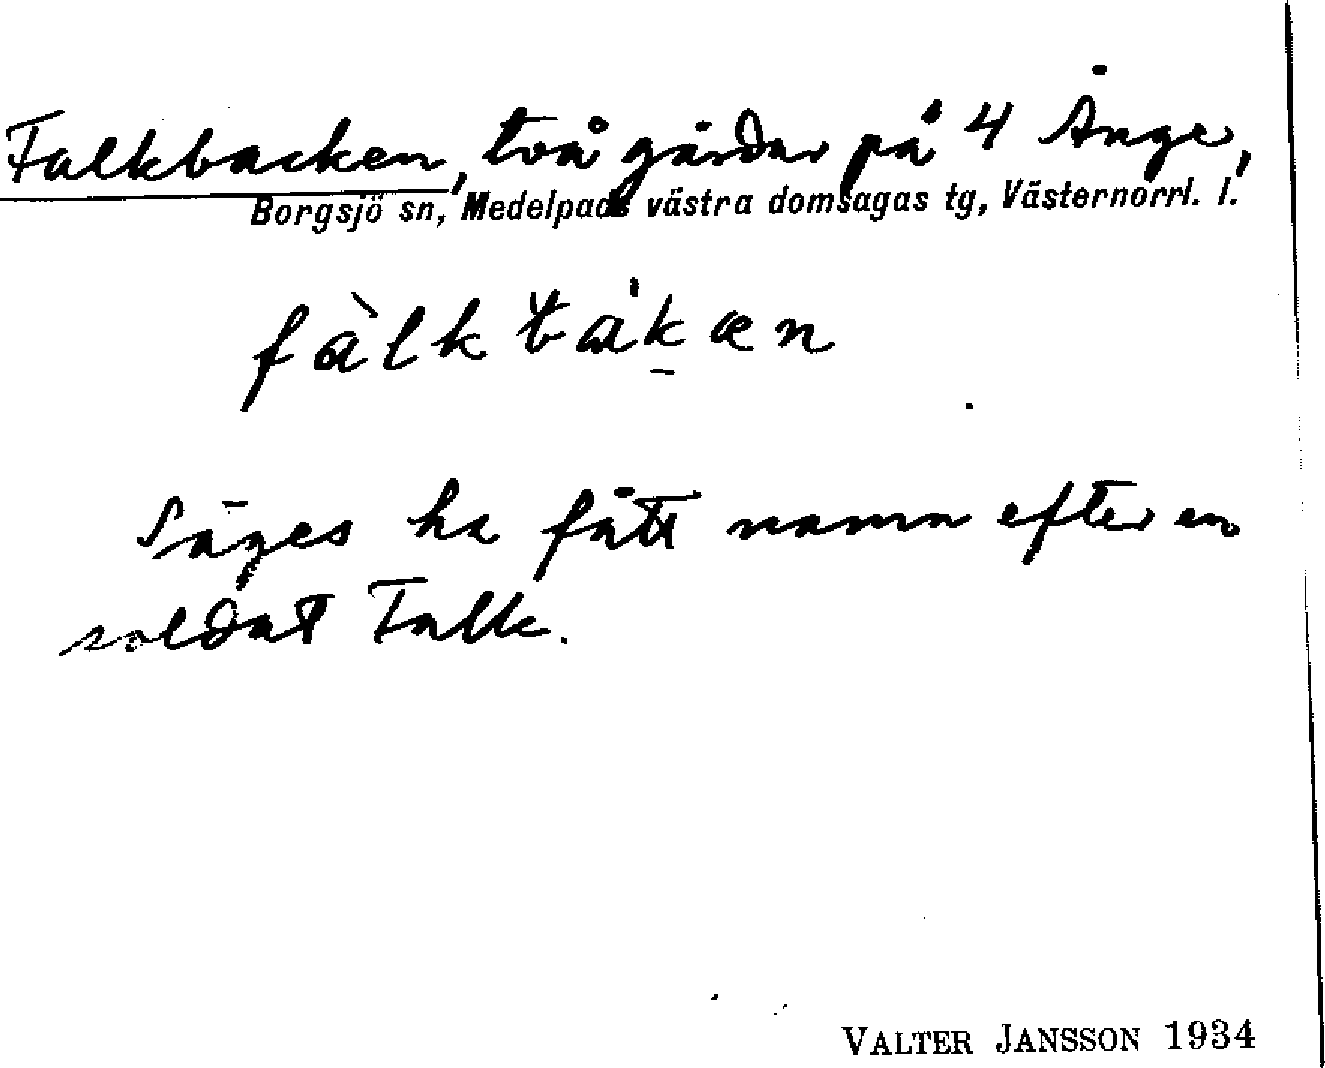 Falkbacken, två gårdar på 4 Ånge,
Borgsjö sn, Medelpads västra domsagas tg, Västernorrl. l.
Säges ha fått namn efter en
soldat Falk.
VALTER JANSSON 1934